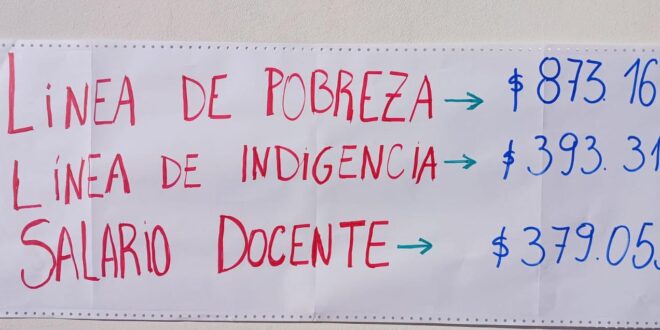 LíNEA DE POBREZA → $ 873.16
LÍNEA DE INDIGENCIA → $ 393.31
SALARIO DOCENTE → $ 379.055